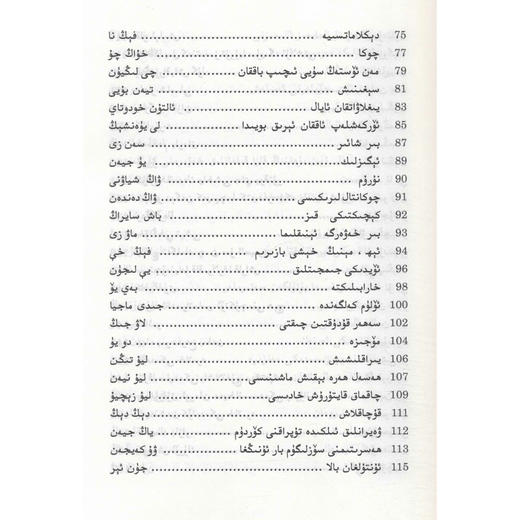 75 دېكلاماتسىيە ........ فېڭ نا
77 چوكا ........ خۇاڭ چۇ
79 مەن ئۆستەڭ سۈيى ئىچىپ باققان ........ چى لىگيۇن
81 سېغىنىش ........ تيەن بۇيى
83 يىغلاۋاتقان ئايال ........ ئالتۇن خودوتاي
85 ئۆركەشلەپ ئاققان ئېرىق بويىدا ........ لى يۇەنشېڭ
87 بىر شائىر ........ سەن زى
89 ئېگىزلىك ........ يۇ جيەن
90 نۇرۇم ........ ۋاڭ شياۋنى
91 چوكانتال لىرىكىسى ........ ۋاڭ دەندەن
92 كېچىكتىكى قىز ........ باش سايراڭ
93 بىر خەۋەرگە ئېنىقلىما ........ ماۋ زى
94 ئېھ ، مېنىڭ خېشى بازىرىم ........ فېڭ خې
96 ئۆيدىكى جىمجىتلىق ........ يې لىجۈن
98 خارابىلىكتە ........ بەي يۆ
100 ئۆلۈم كەلگەندە ........ جىدى ماجيا
102 سەھەر قۇدۇقتىن چىقتى ........ لاۋ جىڭ
104 مۆجىزە ........ دو يۇ
106 يىراقلىشىش ........ ليۇ تىڭن
107 ھەسەل ھەرە بېقىش ماشىنىسى ........ ليۇ نيەن
109 چاقماق قايتۇرۇش خادىسى ........ ليۇ زېچيۇ
111 قۇچاقلاش ........ دېڭ دېڭ
112 ۋەيرانلىق ئىلكىدە تۇپراقنى كۆردۈم ........ ياڭ جيەن
113 ھەسرىتىمنى سۆزلىگۈم بار ئۇنىڭغا ........ ۋۇ كەيجەن
115 ئۇنتۇلغان بالا ........ جۈن ئېر